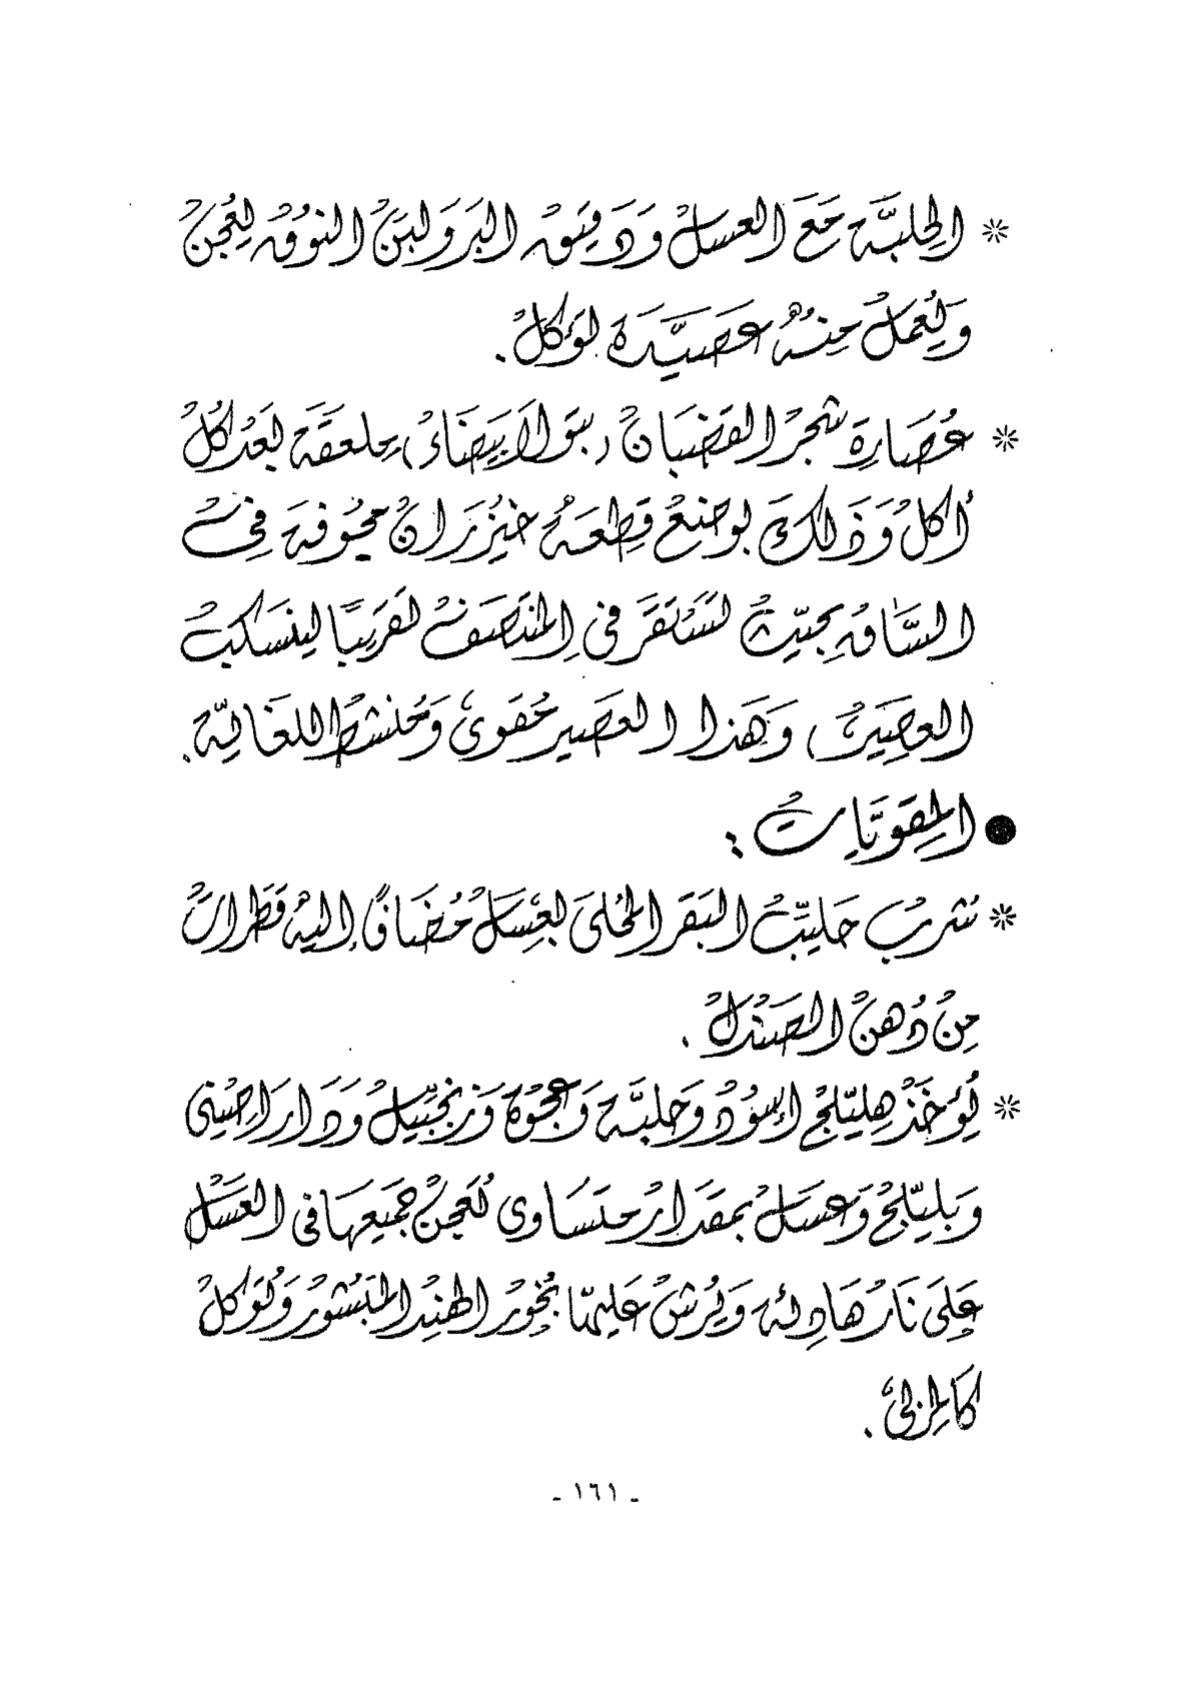 * الحلبة مع العسل ودقيق البر ولبن النوق يعجن
ويعمل منه عصيدة تؤكل.
* عصارة شجر القضبان (بتولا بيضاء) ملعقة بعد كل
أكل وذلك بوضع قطعة خيزران مجوفة في
الساق بحيث تستقر في المنتصف تقريبًا لينسكب
العصير، وهذا العصير مقوي ومنشط للغاية.
● المقويات :
* شرب حليب البقر المحلى بعسل مضافًا إليه قطرات
من دهن الصندل.
* يؤخذ هليلج اسود وحلبة وعجوة وزنجبيل ودار صيني
وبليلج وعسل بمقدار متساوي تعجن جميعها في العسل
على نار هادئة ويرش عليها بخور الهند المبشور وتؤكل
كالمربى.
- ١٦١ -